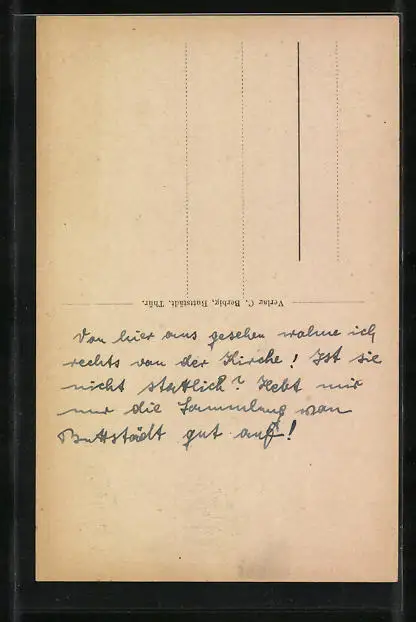 Verlag C. Berbig, Buttstädt, Thür.
Von hier aus gesehen wohne ich
rechts von der Kirche! Ist sie
nicht stattlich? Hebt mir
nur die Sammlung von
Buttstädt gut auf!